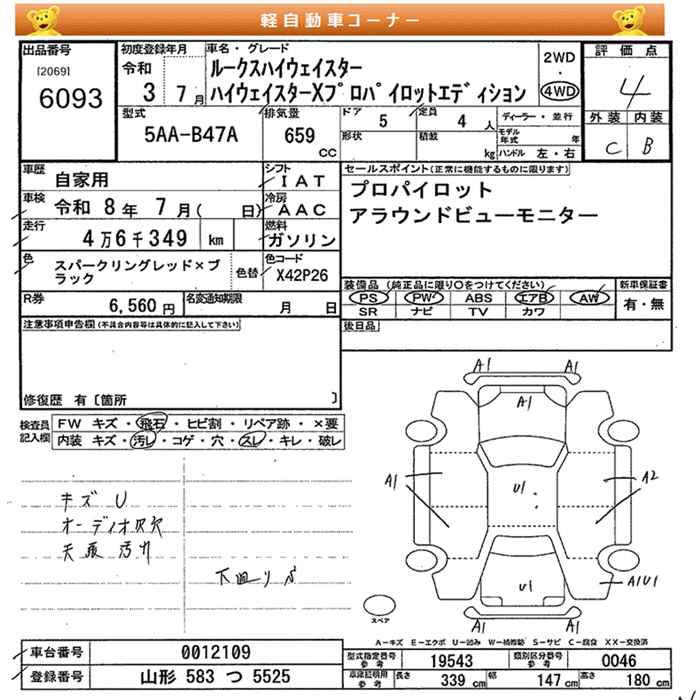 軽自動車コーナー
出品番号
[2069]
6093
初度登録年月
令和
3 7月
車名・グレード
ルークスハイウェイスター
ハイウェイスターXプロパイロットエディション
2WD
・
4WD
評価点
4
外装 内装
C B
型式
5AA-B47A
排気量
659
CC
ドア 5
定員 4 人
形状
積載
kg
ディーラー・並行
モデル年式 年
ハンドル 左・右
車歴
自家用
シフト
IAT
車検
令和 8年 7月( 日)
冷房
AAC
走行
4万6千349 km
燃料
ガソリン
色
スパークリングレッド×ブラック
色替
色コード
X42P26
R券
6,560 円
名変通知期限
月 日
セールスポイント(正常に機能するものに限ります)
プロパイロット
アラウンドビューモニター
装備品(純正品に限り○をつけてください)
PS PW ABS エアB AW
SR ナビ TV カワ
新車保証書
有・無
後日品
注意事項申告欄(不具合内容等は具体的に記入して下さい)
修復歴 有〔箇所 〕
検査員記入欄
FW キズ・飛石・ヒビ割・リペア跡・×要
内装 キズ・汚レ・コゲ・穴・スレ・キレ・破レ
キズ U
オーディオ穴
天張汚れ
下廻りサビ
A1 A1
A1
A1
U1
A2
U1
A1U1
A1 A1
スペア
A-キズ E-エクボ U-凹み W-補修跡 S-サビ C-腐食 XX-交換済
車台番号
0012109
登録番号
山形 583 つ 5525
型式指定番号
参考
19543
類別区分番号
参考
0046
車庫証明用
参考
長さ 339 cm
幅 147 cm
高さ 180 cm